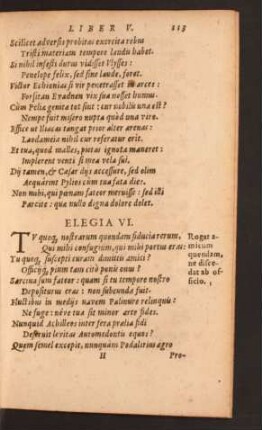 LIBER V. 113
Scilicet adversis probitas exercita rebus
Tristi materiam tempore laudis habet.
Si nihil infesti durus vidisset Ulysses:
Penelope felix, sed sine laude, foret.
Victor Echionias si vir penetrasset in arces:
Forsitan Evadnen vix sua nosset humus.
Cùm Pelia genitæ tot sint: cur nobilis una est?
Nempe fuit misero nupta quòd una viro.
Effice ut Iliacas tangat prior alter arenas:
Laodameia nihil cur referatur erit.
Et tua, quod malles, pietas ignota maneret:
Implerent venti si mea vela sui.
Dij tamen, & Cæsar dijs accessure, sed olim
Aequarint Pylios cùm tua fata dies.
Non mihi, qui pœnam fateor meruisse: sed illi
Parcite: quæ nullo digna dolore dolet.
ELEGIA VI.
TV quoq, nostrarum quondam fiducia rerum,
Qui mihi confugium, qui mihi portus eras:
Tu quoq, suscepti curam dimittis amici?
Officijq, pium tam citò ponis onus?
Sarcina sum fateor: quam si tu tempore nostro
Depositurus eras: non subeunda fuit.
Fluctibus in medijs navem Palinure relinquis?
Ne fuge: néve tua sit minor arte fides.
Nunquid Achilleos inter fera prælia fidi
Deseruit levitas Automedontis equos?
Quem semel excepit, nunquàm Podalirius ægro
Rogat amicum
quendam,
ne discedat
ab officio.
H Pro-